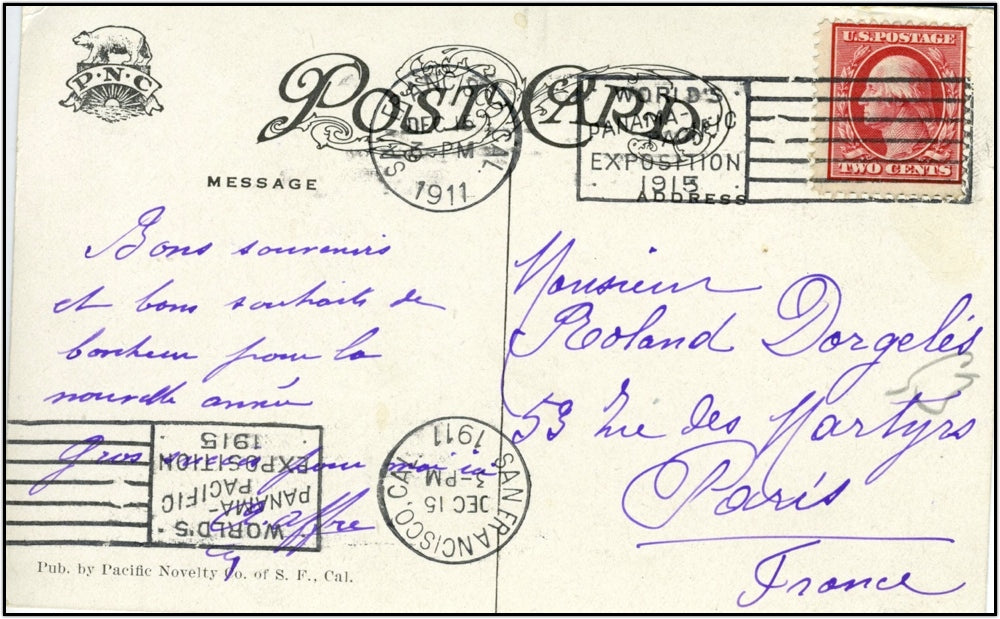 P.N.C.
POST CARD
SAN FRANCISCO, CAL.
DEC 15
3-PM
1911
WORLD'S
PANAMA-PACIFIC
EXPOSITION
1915
U.S. POSTAGE
TWO CENTS
MESSAGE
ADDRESS
Bons souvenirs
et bons souhaits de
bonheur pour la
nouvelle année
Gros pour moi ici
Monsieur
Roland Dorgelès
53 Rue des Martyrs
Paris
France
WORLD'S
PANAMA-
PACIFIC
EXPOSITION
1915
SAN FRANCISCO, CAL.
DEC 15
3-PM
1911
Pub. by Pacific Novelty Co. of S. F., Cal.